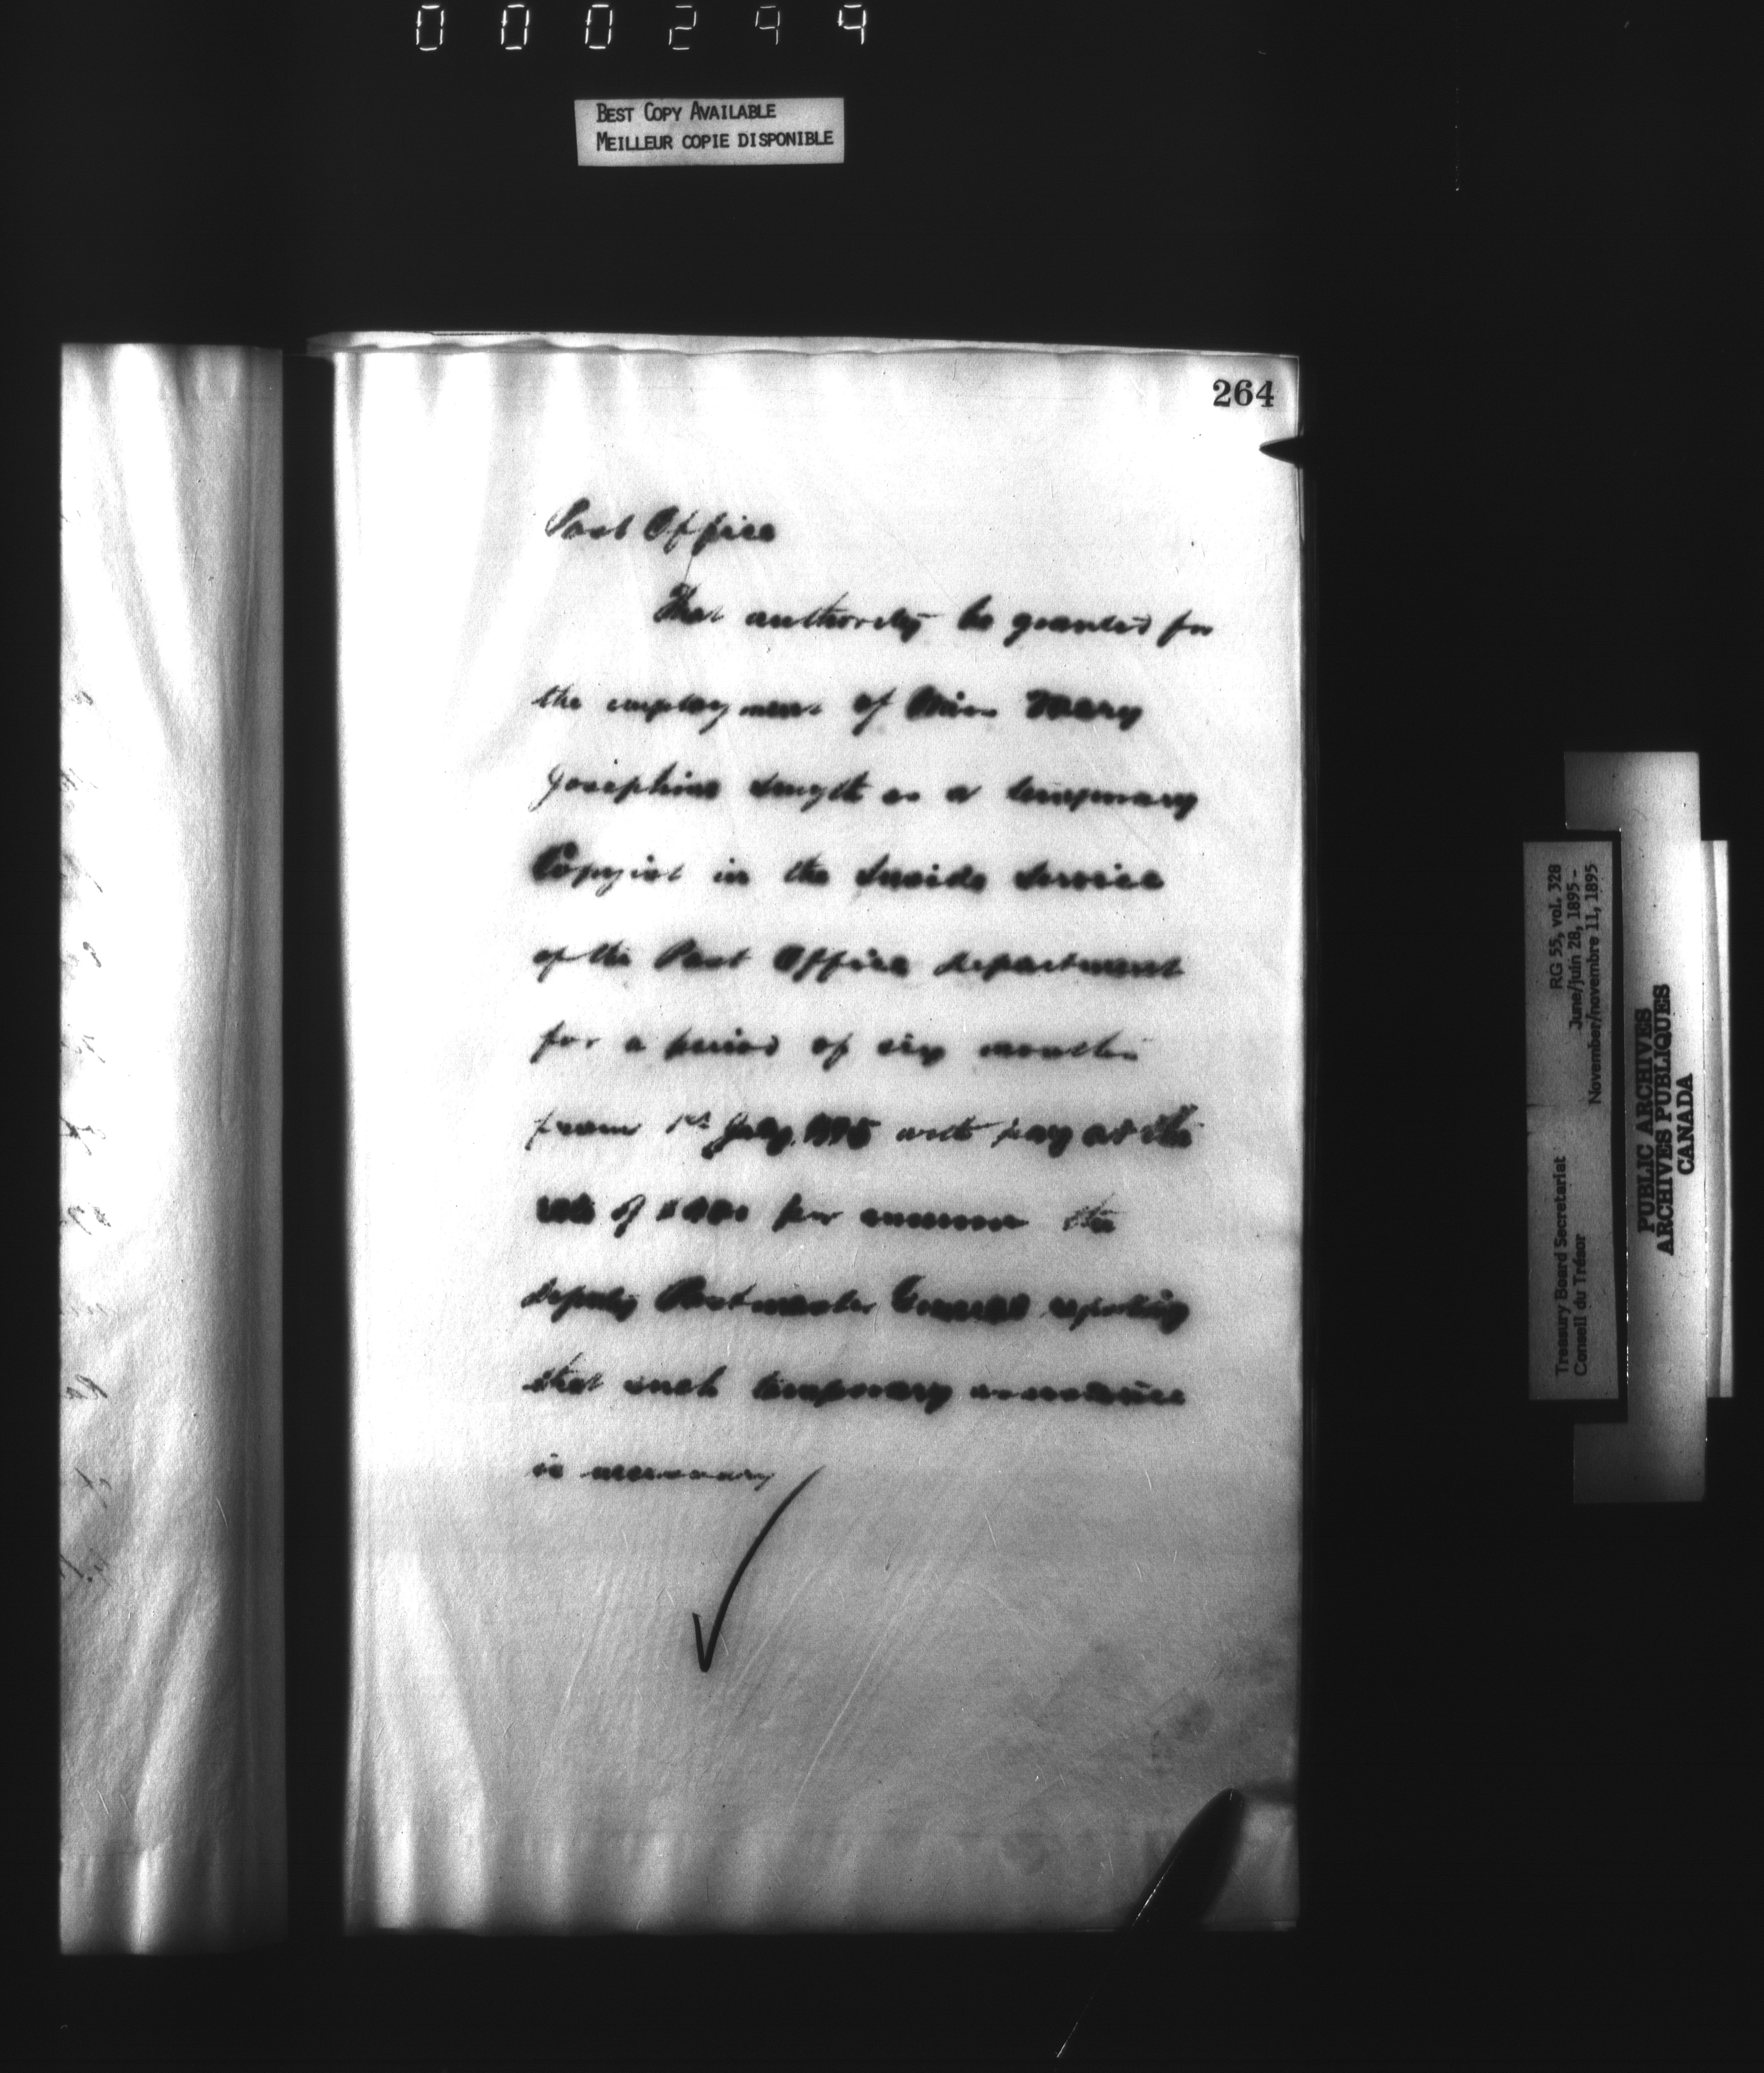 000299
BEST COPY AVAILABLE
MEILLEUR COPIE DISPONIBLE
264
Post Office
That authority be granted for
the employment of Miss Mary
Josephine Smyth as a temporary
Copyist in the Inside Service
of the Post Office department
for a period of six months
from 1st July, 1895 with pay at the
rate of per annum the
deputy Postmaster General reporting
that such temporary assistance
is necessary
Treasury Board Secretariat
Conseil du Trésor
RG 55, vol. 328
June/juin 28, 1895 -
November/novembre 11, 1895
PUBLIC ARCHIVES
ARCHIVES PUBLIQUES
CANADA